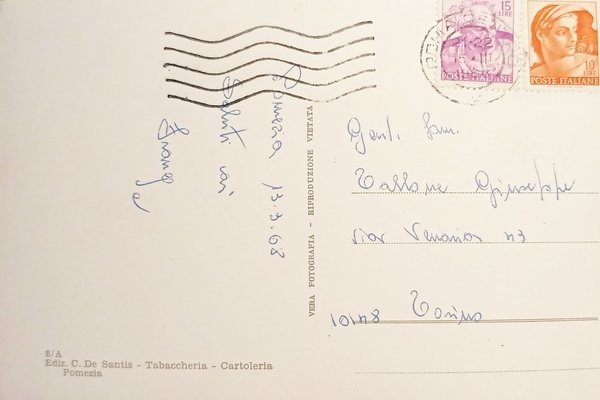 Pomezia 13.3.68
Saluti cari
15
LIRE
POSTE ITALIANE
10
LIRE
POSTE ITALIANE
Gent. Fam.
Tallone Giuseppe
Via Venaria n3
10148 Torino
VERA FOTOGRAFIA - RIPRODUZIONE VIETATA
8/A
Ediz. C. De Santis - Tabaccheria - Cartoleria
Pomezia